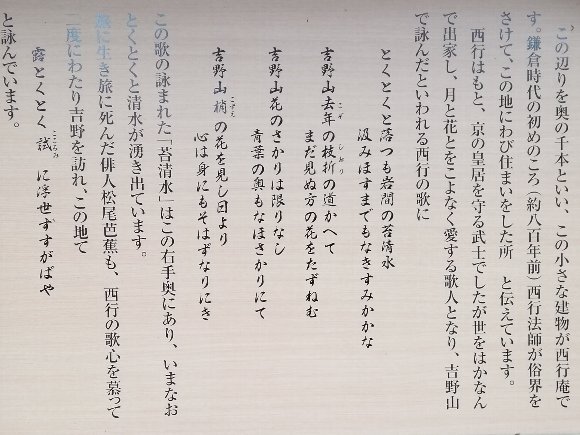 この辺りを奥の千本といい、この小さな建物が西行庵で
す。鎌倉時代の初めのころ(約八百年前)西行法師が俗界を
さけて、この地にわび住まいをした所 と伝えています。
西行はもと、京の皇居を守る武士でしたが世をはかなん
で出家し、月と花とをこよなく愛する歌人となり、吉野山
で詠んだといわれる西行の歌に
とくとくと落つる岩間の苔清水
汲みほすまでもなきすみかかな
吉野山去年の枝折の道かへて
こぞ しおり
まだ見ぬ方の花をたずねむ
吉野山花のさかりは限りなし
青葉の奥もなほさかりにて
吉野山梢の花を見し日より
こずえ
心は身にもそはずなりにき
この歌の詠まれた「苔清水」はこの右手奥にあり、いまなお
とくとくと清水が湧き出ています。
旅に生き旅に死んだ俳人松尾芭蕉も、西行の歌心を慕って
二度にわたり吉野を訪れ、この地で
露とくとく試に浮世すすがばや
こころみ
と詠んでいます。